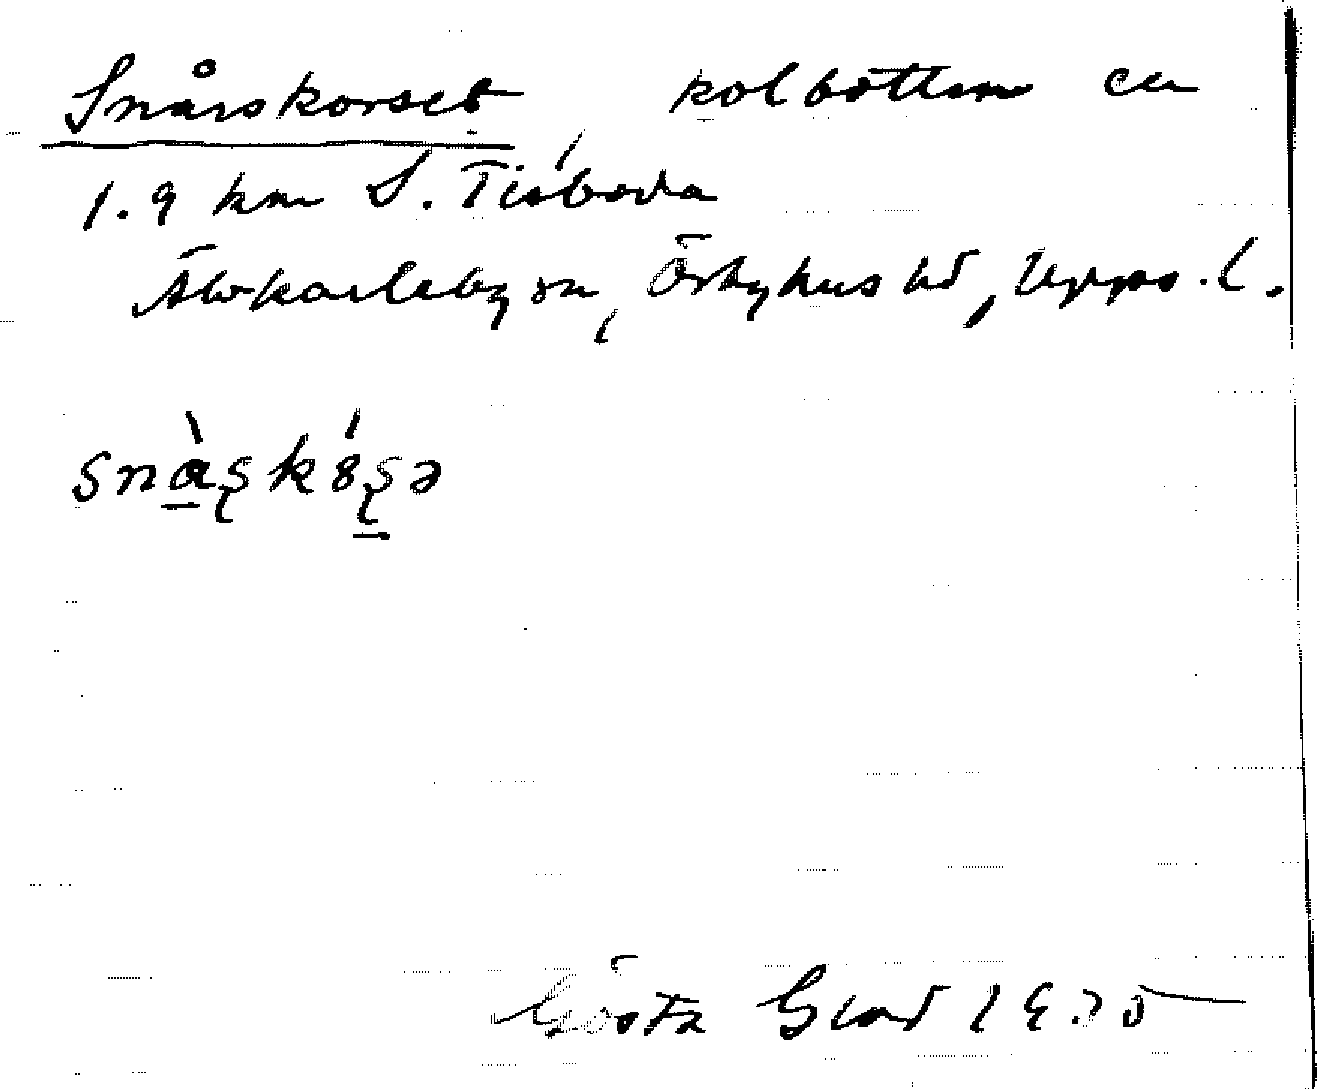 Snårskorset, kolbotten ca
1.9 km S. Tisboda
Älvkarleby sn, Örbyhus hd, Upps. l.
snàʂkóʂə
Gösta